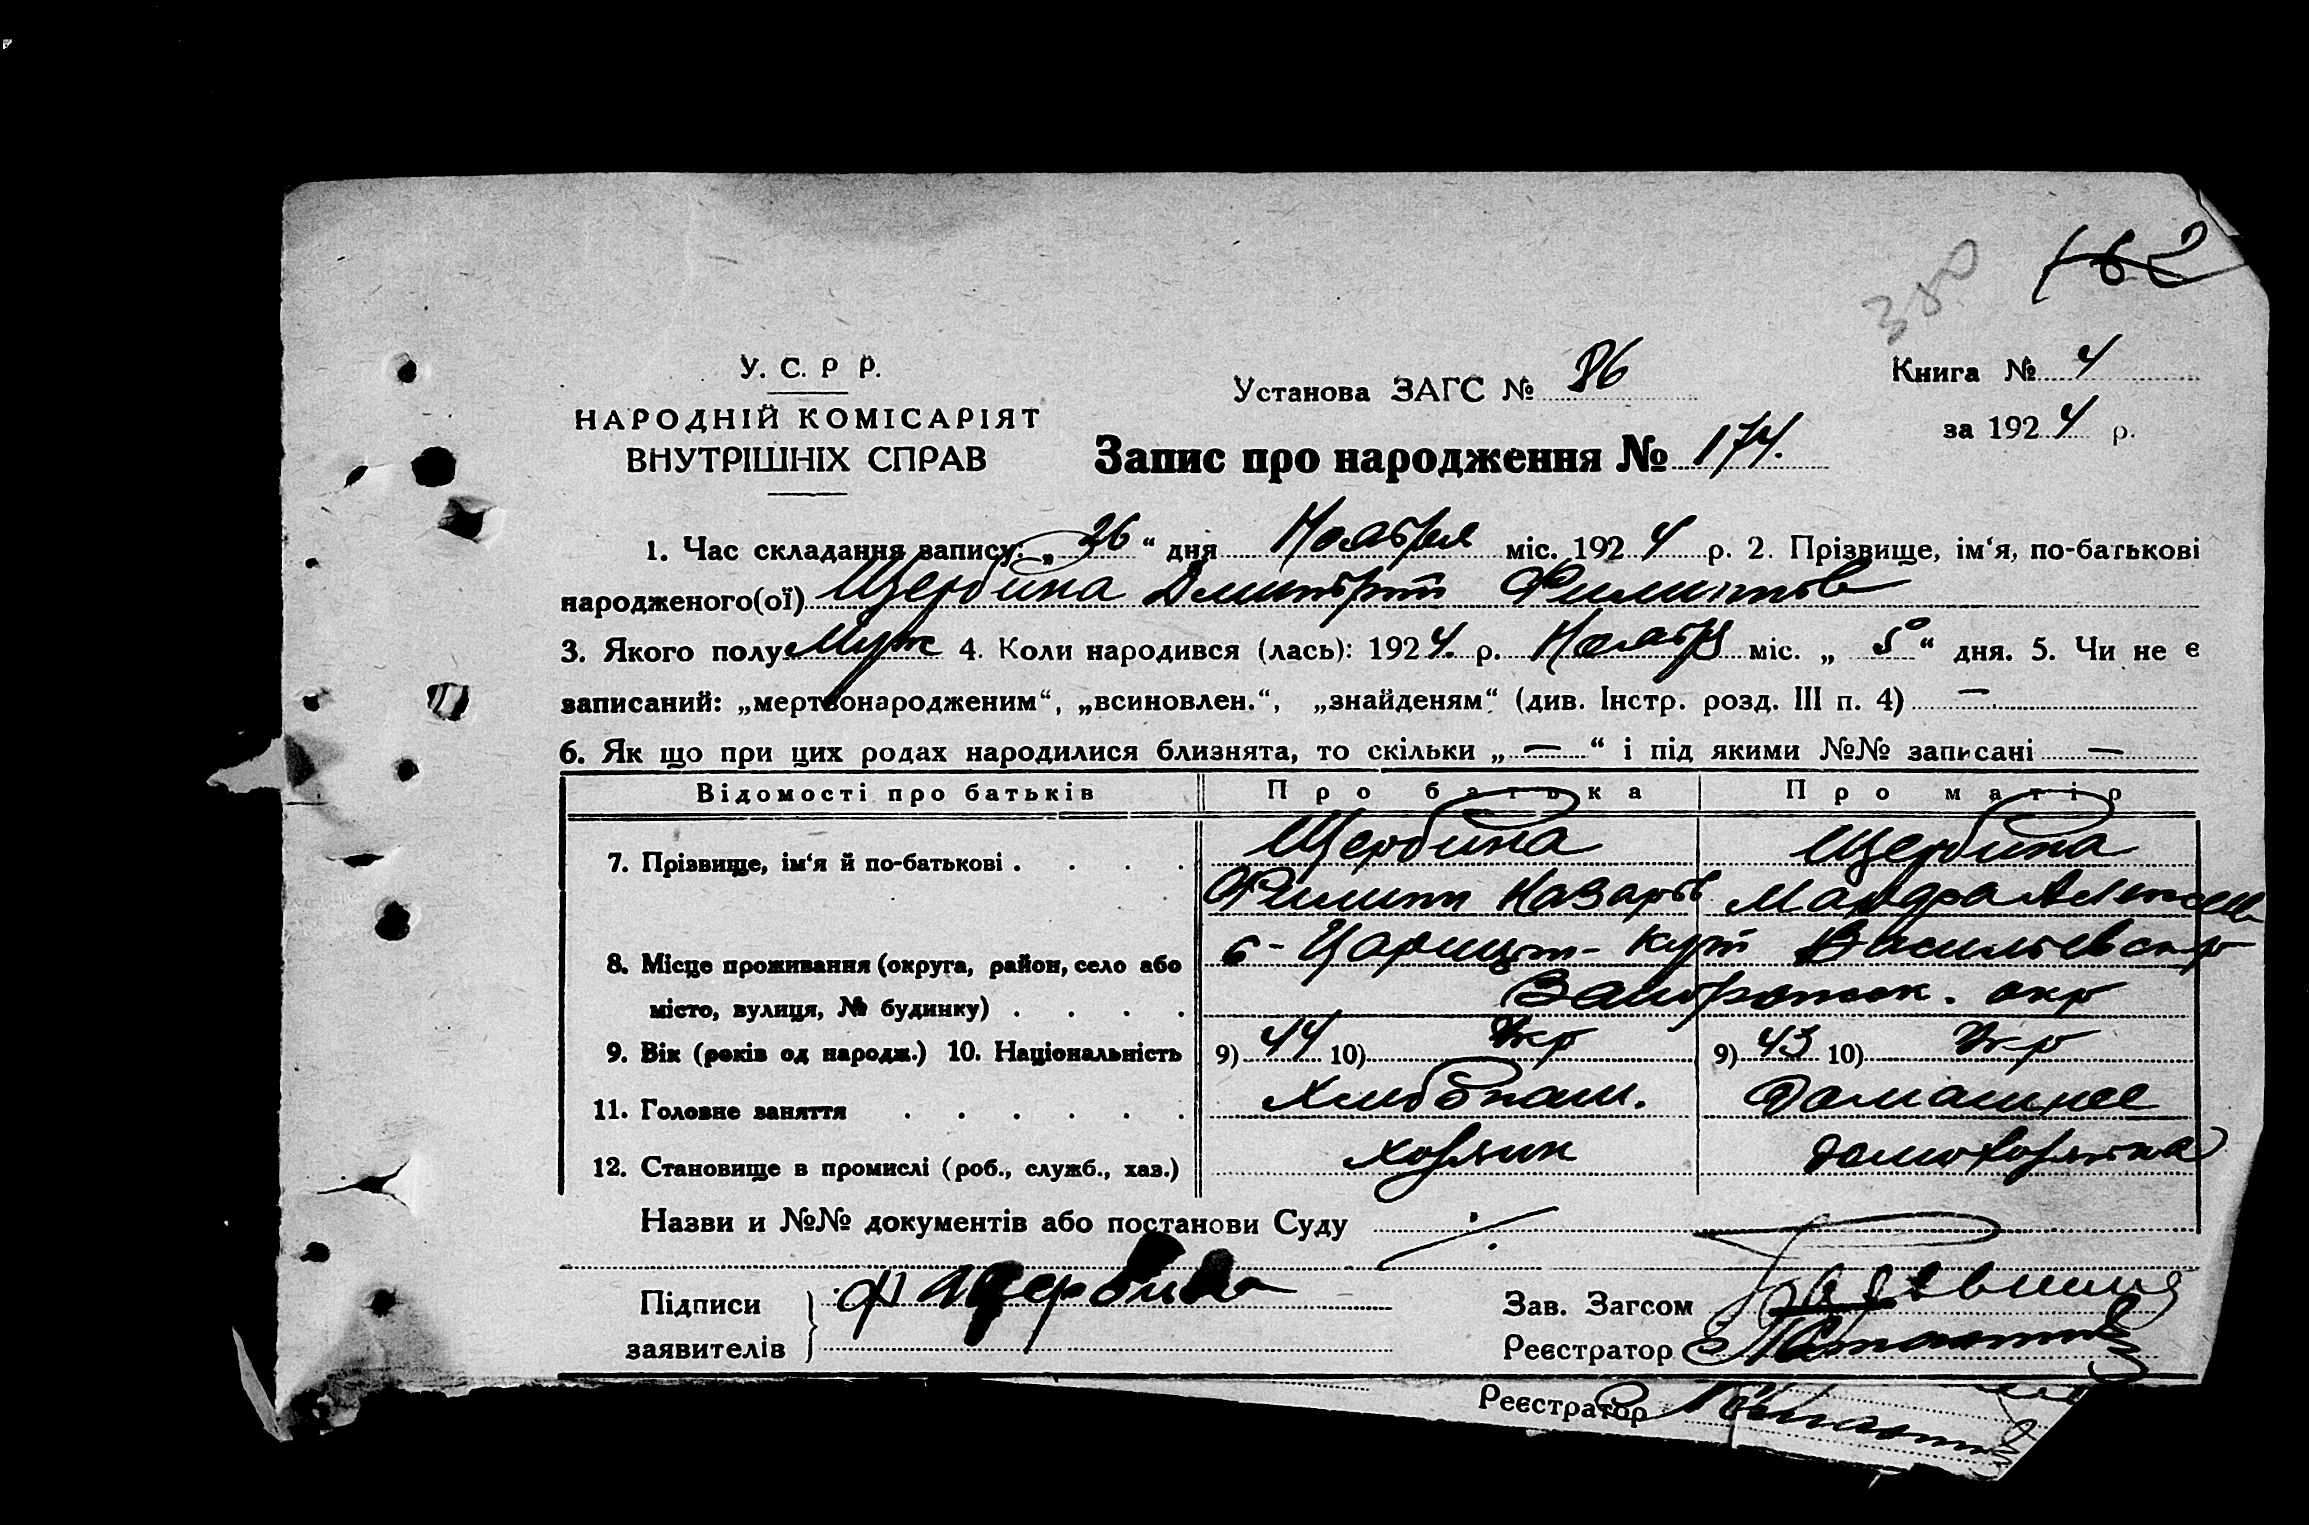 162
380
У. С. Р Р.
НАРОДНІЙ КОМІСАРІЯТ
ВНУТРІШНІХ СПРАВ
Установа ЗАГС № 86
Книга № 4
за 1924 р.
Запис про народження № 174.
1. Час складання запису: „ 26 “ дня Ноября міс. 1924 р. 2. Прізвище, ім‘я, по-батькові
народженого(ої) Щербина Дмитрий Филипов
3. Якого полу Муж 4. Коли народився (лась): 1924 р. Ноябр міс. „ 5 “ дня. 5. Чи не є
записаний: „мертвонародженим“, „всиновлен.“, „знайденям“ (див. Інстр. розд. III п. 4) —
6. Як що при цих родах народилися близнята, то скільки „ — “ і під якими №№ записані —
Відомості про батьків Про батька Про матір
7. Прізвище, ім‘я й по-батькові . . . . Щербина Щербина
Филип Назаров
8. Місце проживання (округа, район, село або с- Царицы- Кут Васильевск р
місто, вулиця, № будинку) . . . . Запорожск. окр
9. Вік (років од народж.) 10. Національність 9) 44 10) Укр 9) 43 10) Укр
11. Головне заняття . . . . . . Хлибопаш. Домашнее
12. Становище в промислі (роб., служб., хаз.) хозяин домохозяйка
Назви и №№ документів або постанови Суду
Підписи Ф Щербина Зав. Загсом
заявителів Реєстратор
Реєстратор